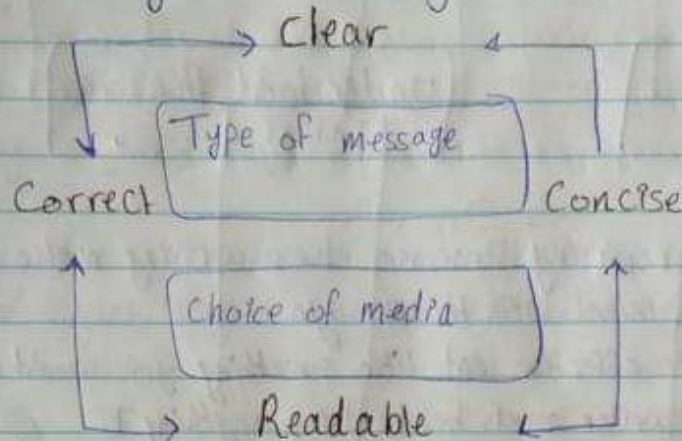 Clear
Type of message
Correct
Concise
Choice of media
Readable